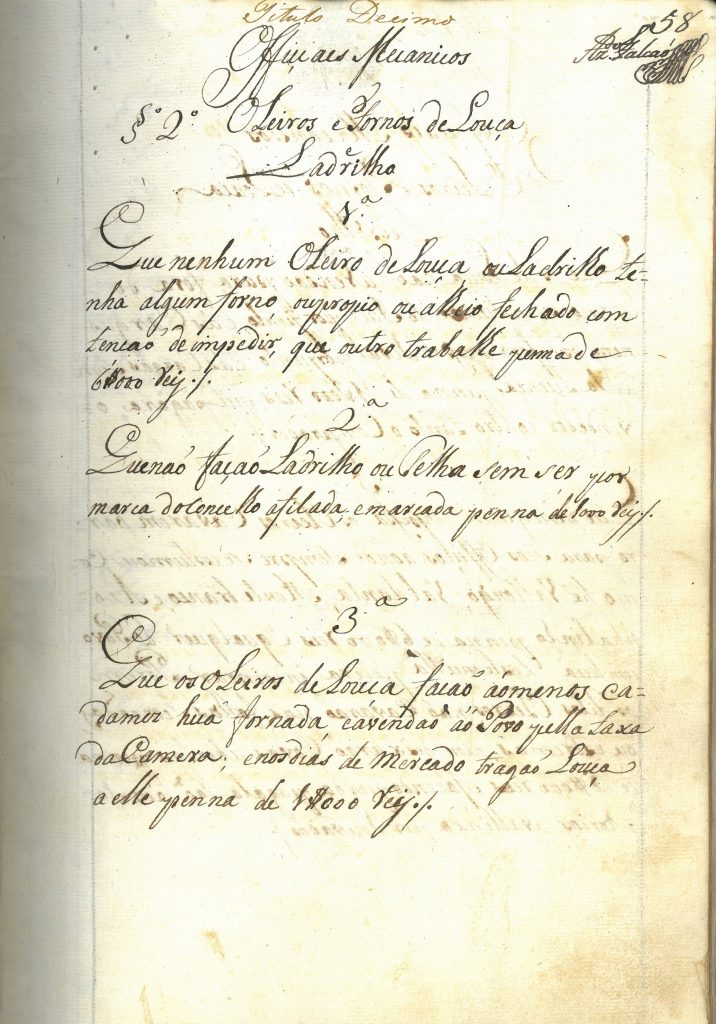 Titulo Decimo
58
Azdo. Falcaõ
Officiaes Mecanicos
§º 2º Oleiros e Fornos de Louça
e Ladrilho
1.ª
Que nenhum Oleiro de Louça ou Ladrilho te-
nha algum forno, ou propio ou álheio fechado com
tencaõ de impedir, que outro trabalhe penna de
6$000 reiz./.
2.ª
Que naõ façaõ Ladrilho ou Telha sem ser por
marca do Concelho afilada, emarcada penna de 1000 reiz./.
3.ª
Que os Oleiros de Louca facaõ áomenos ca-
damez huã fornada, eávendaõ áo Povo pella taxa
da Camera, enosdiás de Mercado tragaõ Louça
a elle penna de 1$000 reiz./.